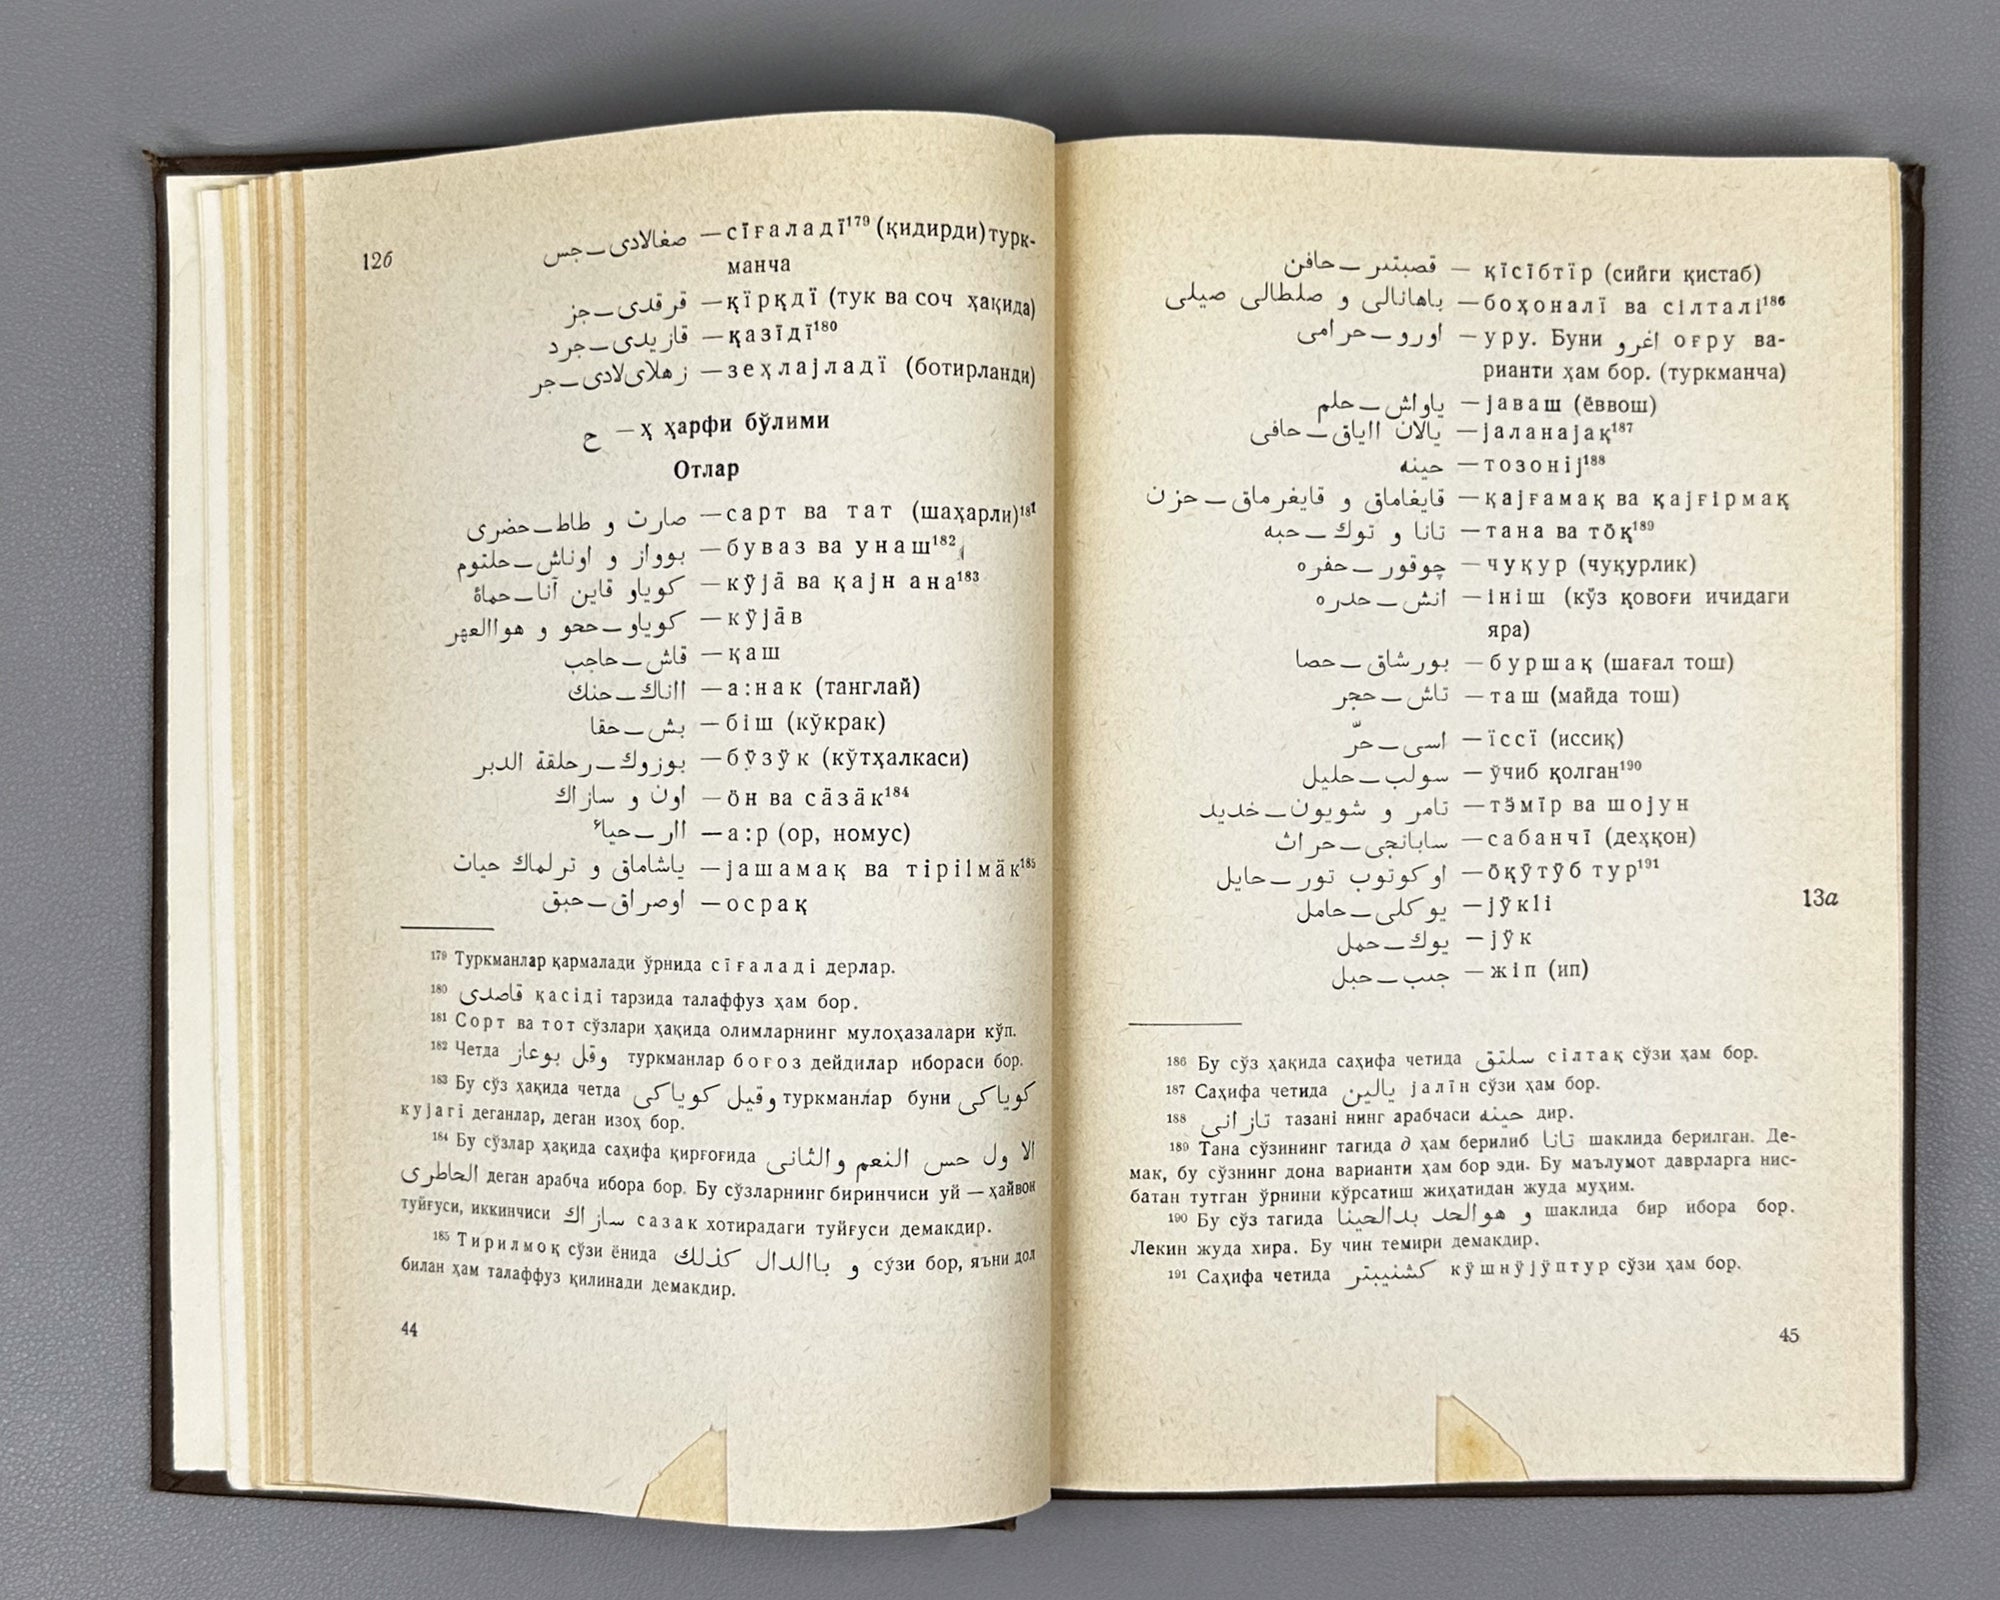 12б
صغالادی ــ جس — сїғаладї¹⁷⁹ (қидирди) турк-
манча
قرقدی ــ جز — қїрқдї (тук ва соч ҳақида)
قازیدی ــ جرد — қазїдї¹⁸⁰
زهلای‌لادی ــ جر — зеҳлаjладї (ботирланди)
ح — ҳ ҳарфи бўлими
Отлар
صارت و طاط ــ حضری — сарт ва тат (шаҳарли)¹⁸¹
بوواز و اوناش ــ حلتوم — буваз ва унаш¹⁸²
کویاو قاین آنا ــ حماة — кӱjӓ ва қаjн ана¹⁸³
کویاو ــ حمو و هواالعهر — кӱjӓв
قاش ــ حاجب — қаш
ااناك ــ حنك — а:нак (танглай)
بش ــ حقا — біш (кўкрак)
بوزوك ــ رحلقة الدبر — бӱзӱк (кўтҳалкаси)
اون و سازاك — ӧн ва сӓзӓк¹⁸⁴
اار ــ حیاء — а:р (ор, номус)
یاشاماق و ترلماك حیات — jашамақ ва тірілмӓк¹⁸⁵
اوصراق ــ حبق — осрақ
¹⁷⁹ Туркманлар қармалади ўрнида сїғаладі дерлар.
¹⁸⁰ قاصدی қасіді тарзида талаффуз ҳам бор.
¹⁸¹ Сорт ва тот сўзлари ҳақида олимларнинг мулоҳазалари кўп.
¹⁸² Четда وقل بوعاز туркманлар боғоз дейдилар ибораси бор.
¹⁸³ Бу сўз ҳақида четда وقیل کویاکی туркманлар буни کویاکی
куjагі деганлар, деган изоҳ бор.
¹⁸⁴ Бу сўзлар ҳақида саҳифа қирғоғида الا ول حس النعم والثانی
الخاطری деган арабча ибора бор. Бу сўзларнинг биринчиси уй — ҳайвон
туйғуси, иккинчиси سازاك сазак хотирадаги туйғуси демакдир.
¹⁸⁵ Тирилмоқ сўзи ёнида و باالدال کذلك сўзи бор, яъни дол
билан ҳам талаффуз қилинади демакдир.
44
قصبتدر ــ حافن — қїсїбтїр (сийги қистаб)
باهانالی و صلطالی صیلی — боҳоналї ва сілталі¹⁸⁶
اورو ــ حرامی — уру. Буни اغرو оғру ва-
рианти ҳам бор. (туркманча)
یاواش ــ حلم — jаваш (ёввош)
یالان اایاق ــ حافی — jаланаjақ¹⁸⁷
حینه — тозоніj¹⁸⁸
قایغاماق و قایغرماق ــ حزن — қаjғамақ ва қаjғірмақ
تانا و توك ــ حبه — тана ва тӧқ¹⁸⁹
چوقور ــ حفره — чуқур (чуқурлик)
انش ــ حدره — ініш (кўз қовоғи ичидаги
яра)
بورشاق ــ حصا — буршақ (шағал тош)
تاش ــ حجر — таш (майда тош)
اسی ــ حرّ — їссї (иссиқ)
سولب ــ حلیل — ўчиб қолган¹⁹⁰
تامر و شویون ــ خدید — тӭмїр ва шоjун
سابانجی ــ حراث — сабанчї (деҳқон)
اوکوتوب تور ــ حایل — ӧқӱтӱб тур¹⁹¹
13а
یوکلی ــ حامل — jӱклі
یوك ــ حمل — jӱк
جىب ــ حبل — жіп (ип)
¹⁸⁶ Бу сўз ҳақида саҳифа четида سلتق сілтақ сўзи ҳам бор.
¹⁸⁷ Саҳифа четида یالین jалїн сўзи ҳам бор.
¹⁸⁸ تازانی тазані нинг арабчаси حینه дир.
¹⁸⁹ Тана сўзининг тагида д ҳам берилиб تانا шаклида берилган. Де-
мак, бу сўзнинг дона варианти ҳам бор эди. Бу маълумот даврларга нис-
батан тутган ўрнини кўрсатиш жиҳатидан жуда муҳим.
¹⁹⁰ Бу сўз тагида و هوالحد بدالحینا шаклида бир ибора бор.
Лекин жуда хира. Бу чин темири демакдир.
¹⁹¹ Саҳифа четида کشنیبتر кӱшнӱjӱптур сўзи ҳам бор.
45